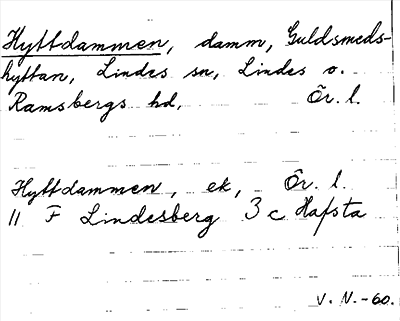 Hyttdammen, damm, Guldsmeds-
hyttan, Lindes sn, Lindes o.
Ramsbergs hd, Ör. l.
Hyttdammen, ek, Ör. l.
11 F Lindesberg 3 c Hafsta
V. N. -60.